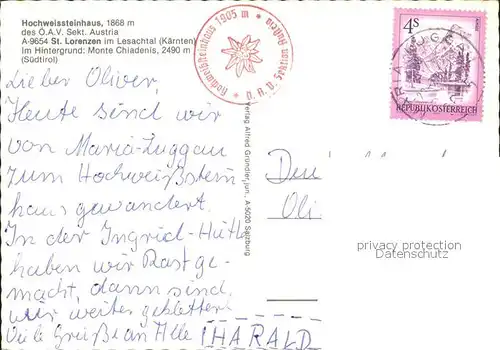 Hochweissteinhaus, 1868 m
des Ö.A.V. Sekt. Austria
A-9654 St. Lorenzen im Lesachtal (Kärnten)
Im Hintergrund: Monte Chiadenis, 2490 m
(Südtirol)
Lieber Oliver,
Heute sind wir
von Maria-Luggau
zum Hochweißstein
haus gewandert.
In der Ingrid-Hütte
haben wir Rast ge-
macht, dann sind
wir weiter geklettert
Viele Grüße an Alle
HARALD
Hochweißsteinhaus 1905 m
Verlag Alfred Gründler, jun., A-5020 Salzburg
4S
REPUBLIK ÖSTERREICH
Den
Oli
privacy protection
Datenschutz